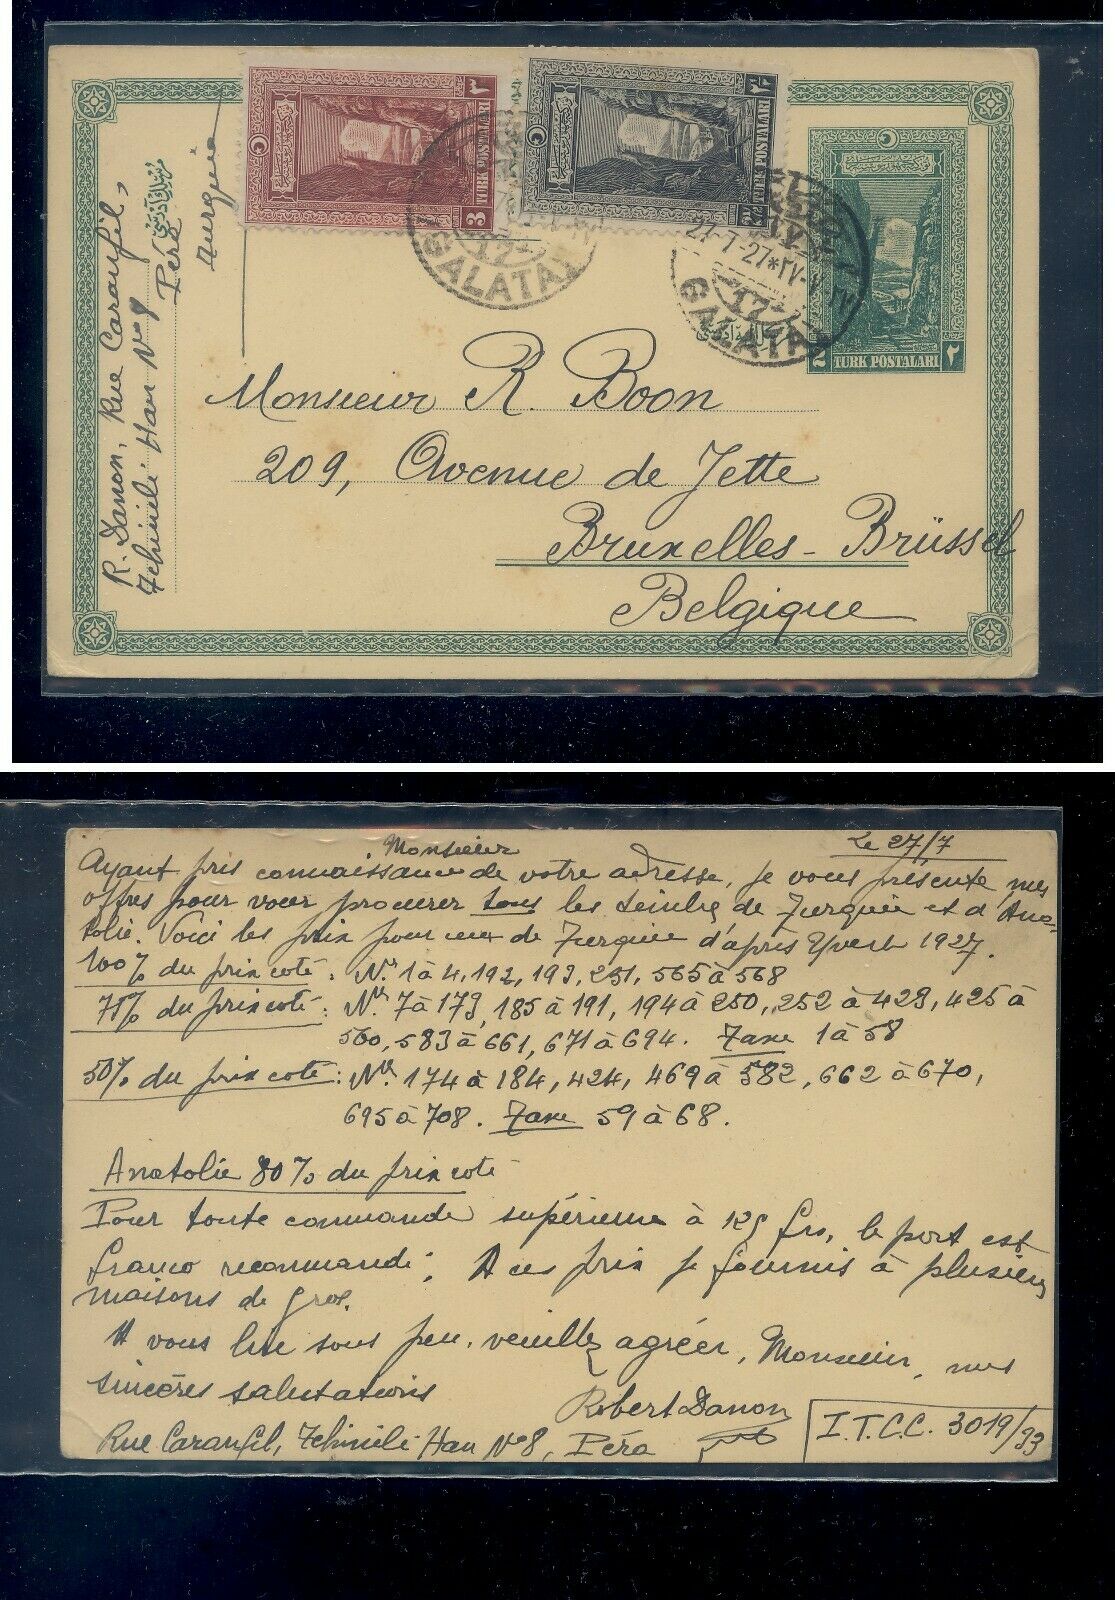 R. Danon, Rue Caranfil,
Tchinili Han No 9
Péra
Turquie
3 TURK POSTALARI ٣
TURK POSTALARI
GALATA
17
27-7-27*٢٧-٧-٢٧
GALATA
17
2 TURK POSTALARI ٢
Monsieur R. Boon
209, Avenue de Jette
Bruxelles - Brüssel
Belgique
Le 27/7
Monsieur
Ayant pris connaissance de votre adresse, je vous présente mes
offres pour vous procurer tous les timbres de Turquie et d'Ana-
tolie. Voici les prix pour ceux de Turquie d'après Yvert 1927.
100% du prix coté: Nos 1 à 4, 192, 193, 251, 565 à 568
75% du prix coté: Nos 7 à 173, 185 à 191, 194 à 250, 252 à 423, 425 à
560, 583 à 661, 671 à 694. Taxe 1 à 58
50% du prix coté: Nos 174 à 184, 424, 469 à 582, 662 à 670,
695 à 708. Taxe 59 à 68.
Anatolie 80% du prix coté
Pour toute commande supérieure à frs, le port est
franco recommandé. A ces prix je fournis à plusieurs
maisons de gros.
A vous lire sous peu, veuillez agréer, Monsieur, mes
sincères salutations
Robert Danon
Rue Caranfil, Tchinili Han No 8, Péra
I.T.C.C. 3019/93